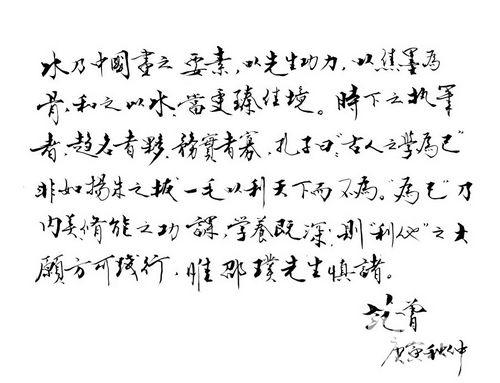 水乃中國畫之要素，以先生功力，以焦墨為
骨，和之以水，當更臻佳境。時下之執筆
者，趨名者夥，務實者寡，孔子曰“古人之學為己”
非如楊朱之拔一毛以利天下而不為。“為己”乃
內美脩能之功課，學養既深，則“利他”之大
願方可踐行，唯邵璞先生慎諸。
范曾
庚寅秋仲